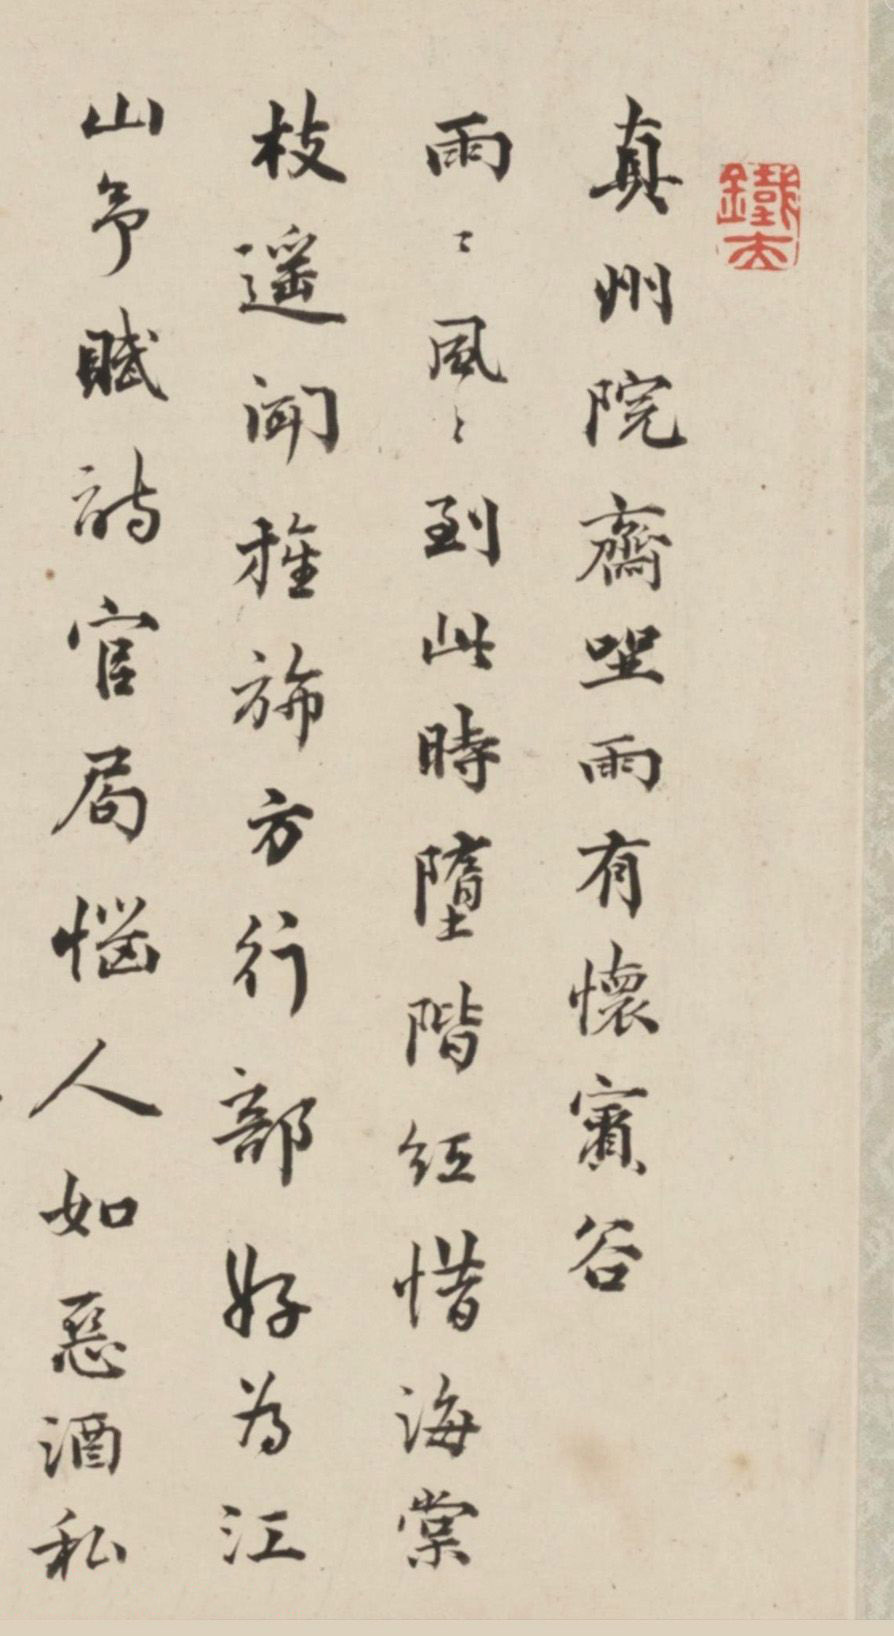 鐵夫
真州院齋坐雨有懷賓谷
雨〻風〻到此時墮階紅惜海棠
枝遥聞旌旆方行部好為江
山予賦詩官局惱人如惡酒私